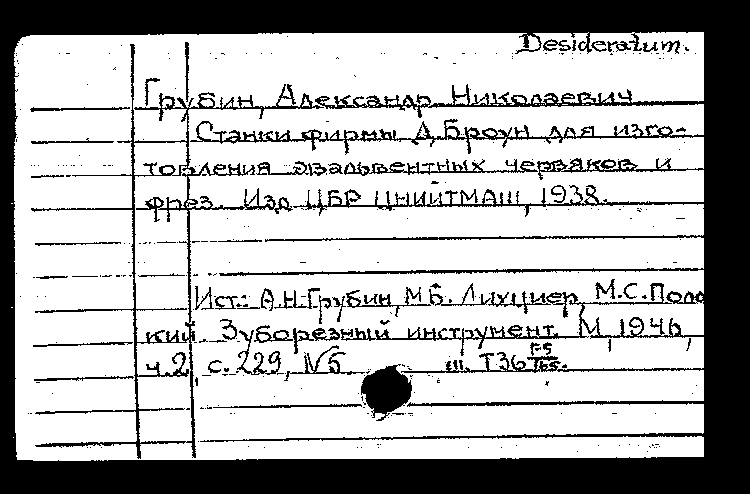 Desideratum.
Грубин, Александр Николаевич
Станки фирмы Д. Броун для изго-
товления эвальвентных червяков и
фрез. Изд ЦБР ЦНИИТМАШ, 1938.
Ист.: А.Н. Грубин, М.Б. Лихциер, М.С. Поло
кий. Зуборезный инструмент. М, 1946,
ч.2, с. 229, №5 Ш. Т36